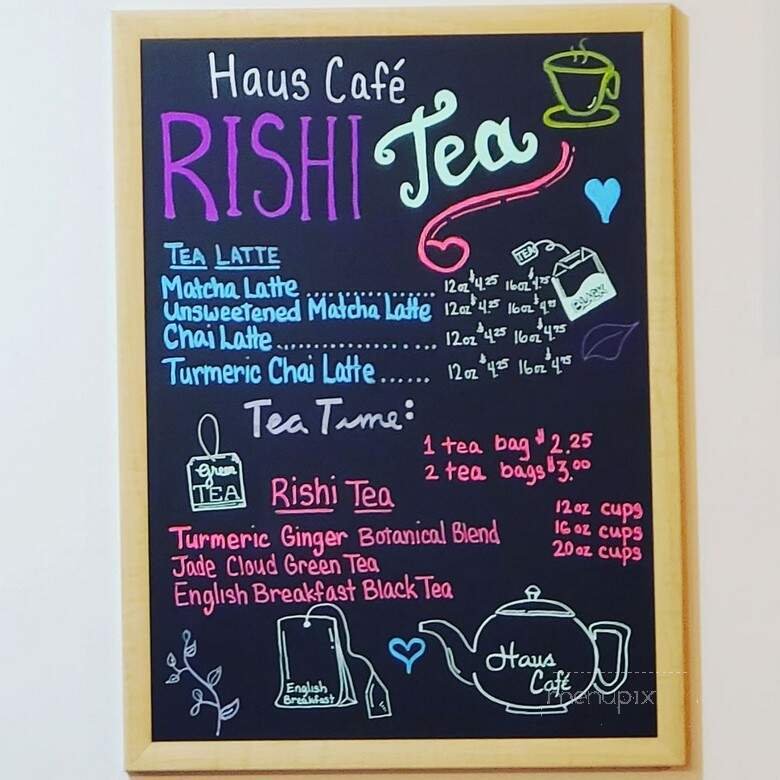 Haus Café
RISHI Tea
TEA LATTE
Matcha Latte .................. 12oz $4.25 16oz $4.75
Unsweetened Matcha Latte 12oz $4.25 16oz $4.75
Chai Latte .................. 12oz $4.25 16oz $4.75
Turmeric Chai Latte ...... 12oz $4.25 16oz $4.75
TEA
BLACK
Tea Time:
1 tea bag $2.25
2 tea bags $3.00
Green
TEA
Rishi Tea
12oz cups
16oz cups
20oz cups
Turmeric Ginger Botanical Blend
Jade Cloud Green Tea
English Breakfast Black Tea
English
Breakfast
Haus
Café
menupix